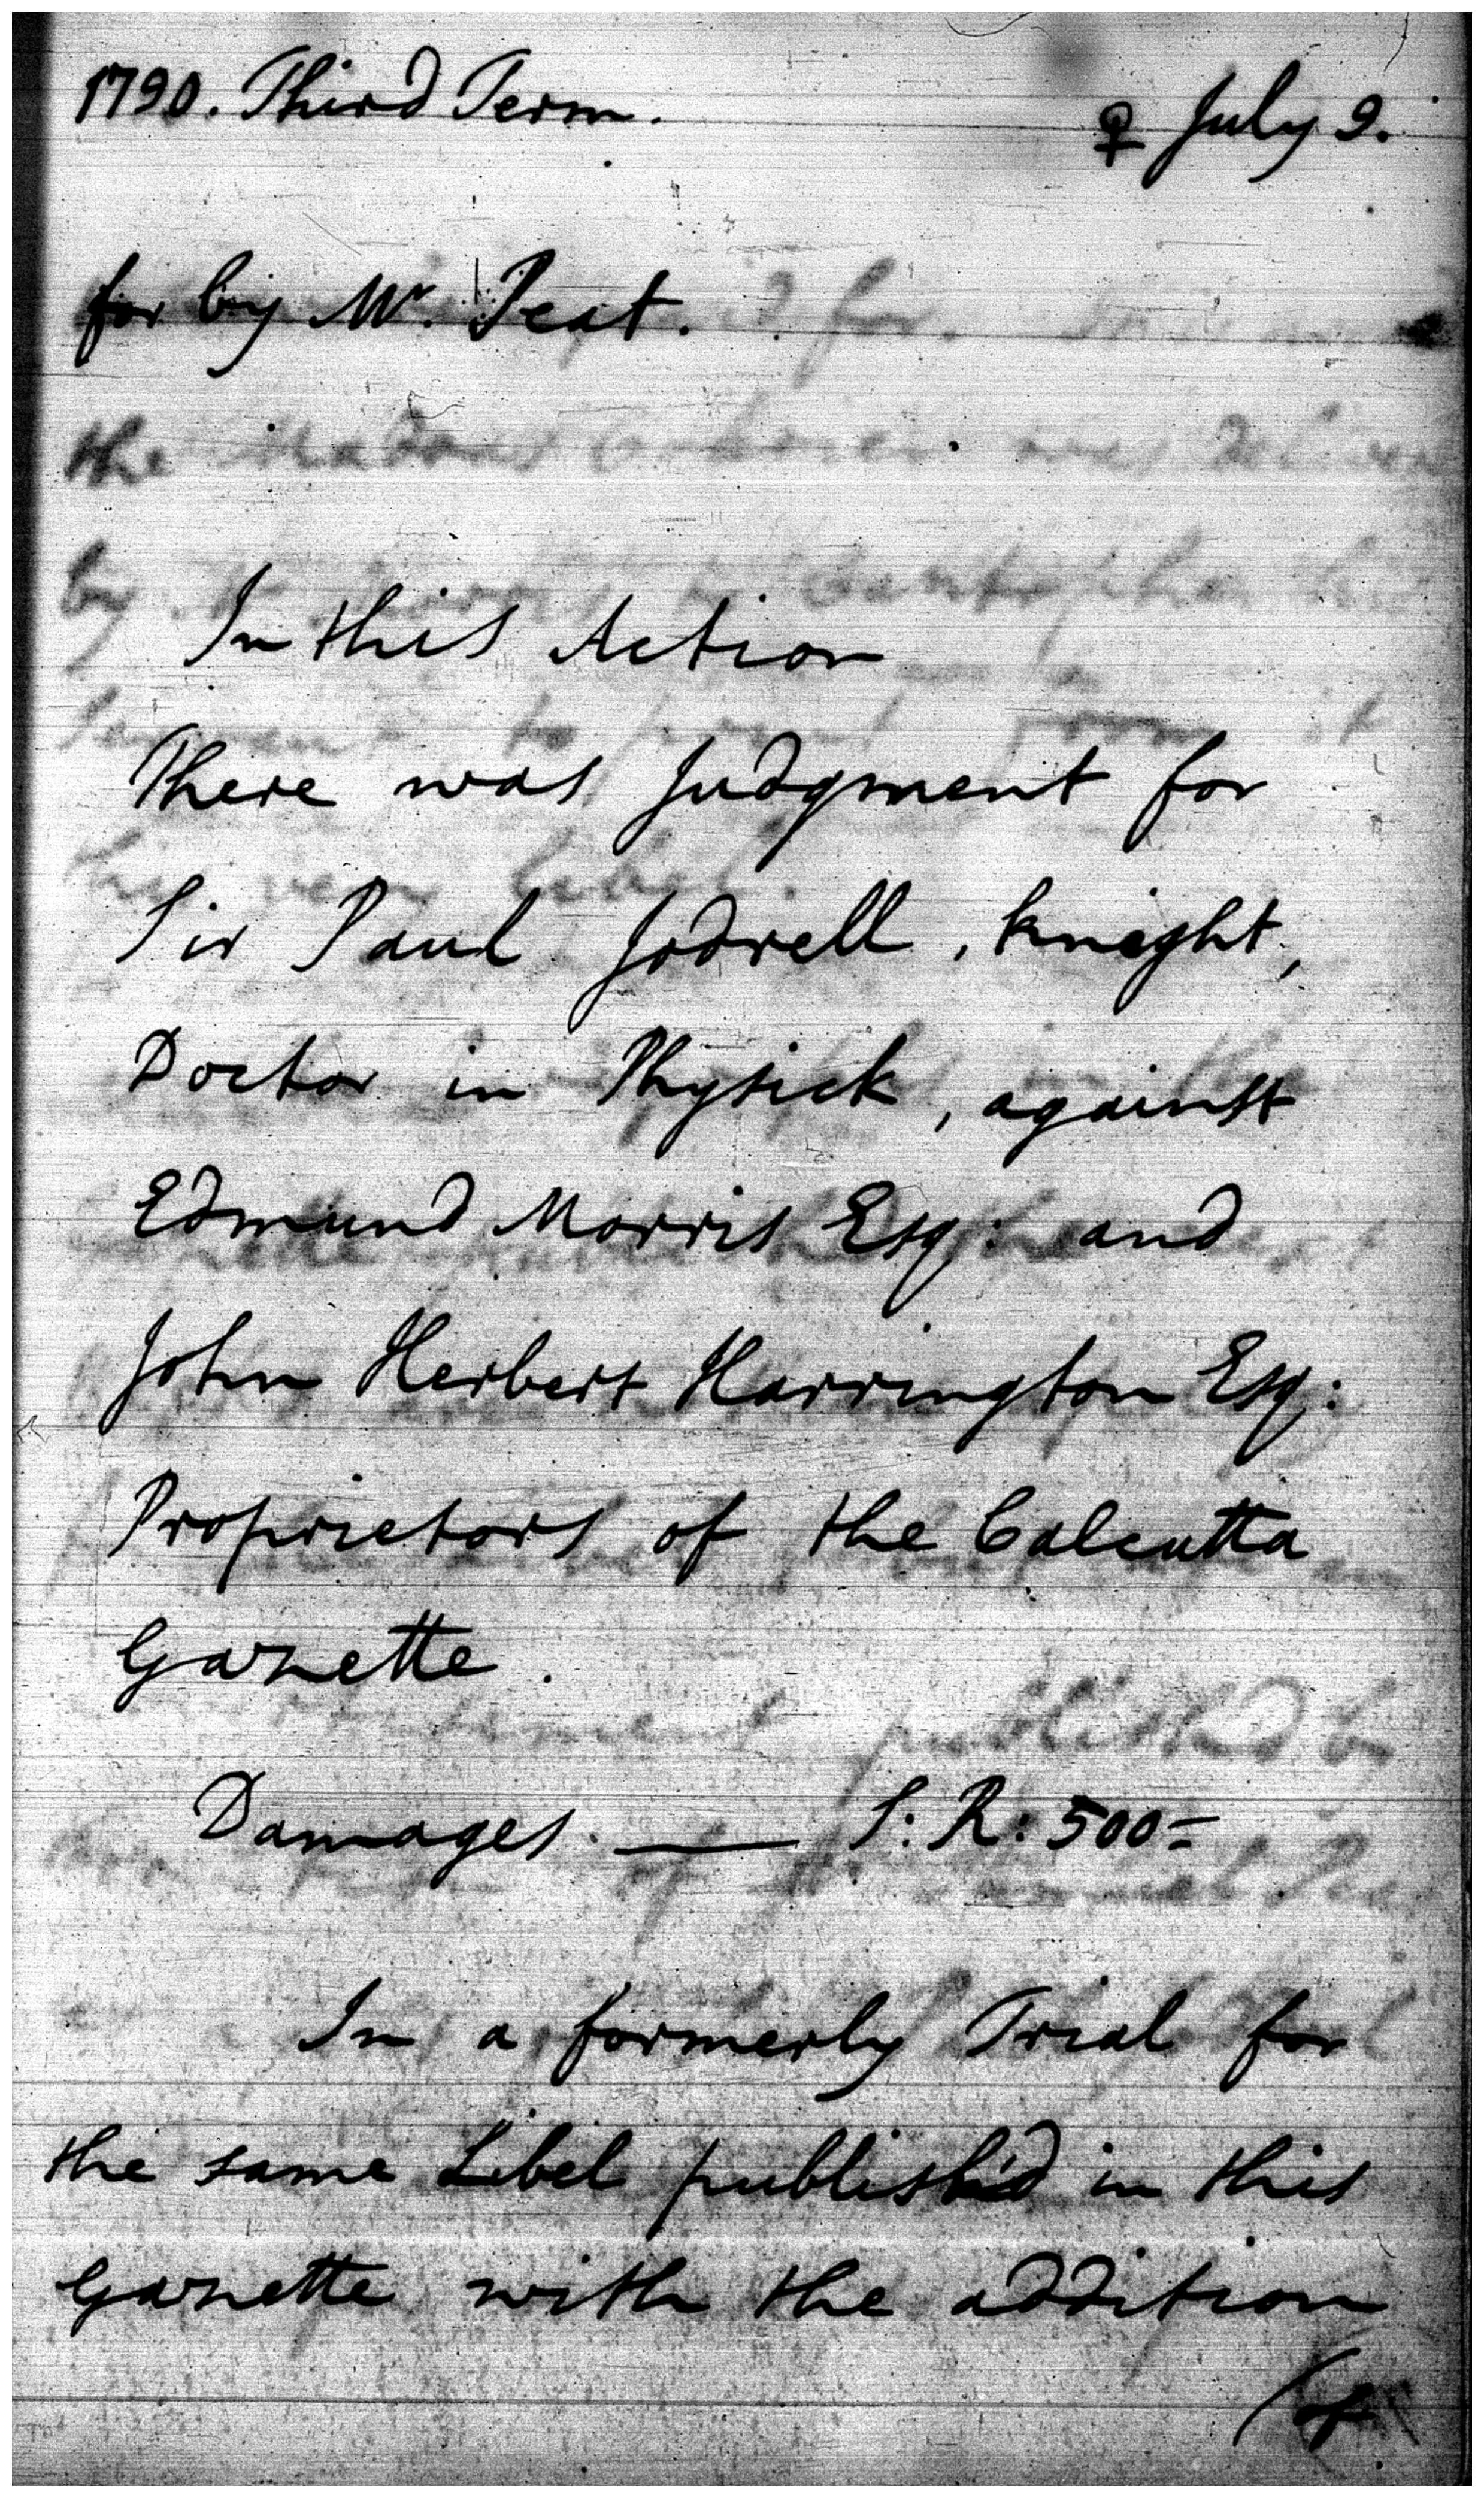 1790. Third Term. ♀ July 9.
for by Mr. Peat.
In this Action
There was Judgment for
Sir Paul Jodrell, Knight,
Doctor in Physick, against
Edmund Morris Esq: and
John Herbert Harrington Esq:
Proprietors of the Calcutta
Gazette.
Damages — S: R: 500=
In a formerly Trial for
the same Libel publish'd in this
Gazette with the addition
(of